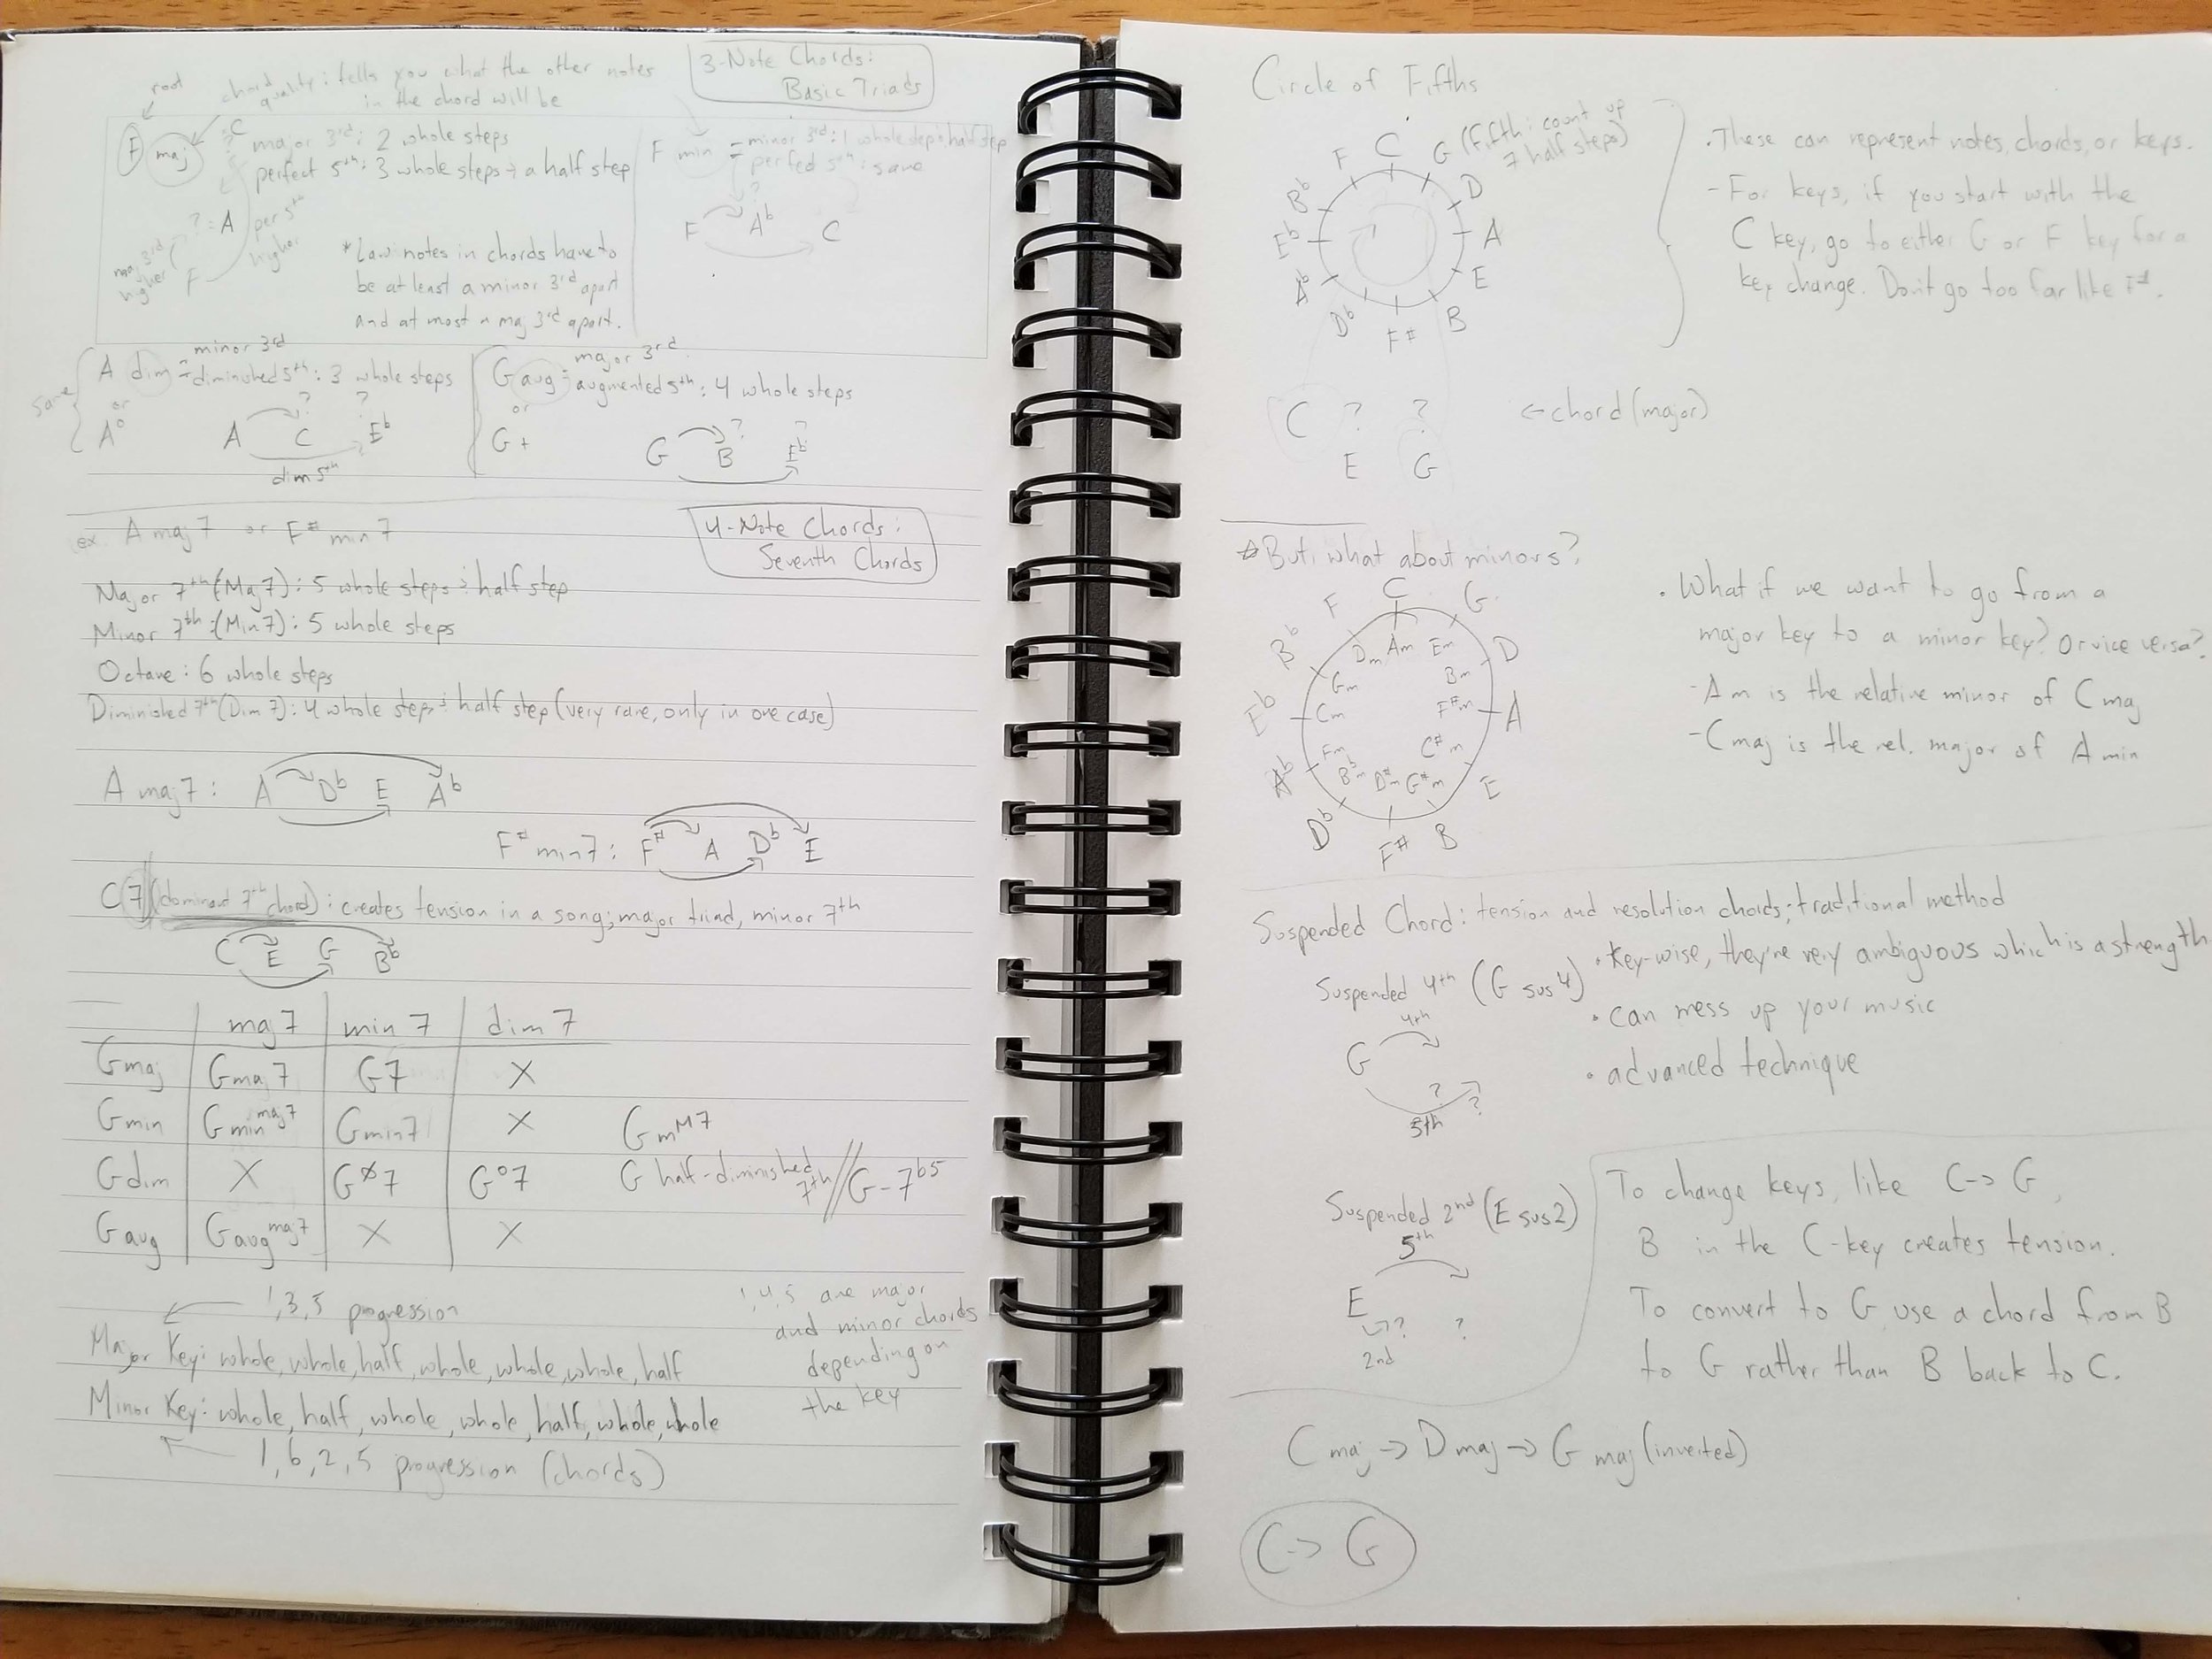 3-Note Chords:
Basic Triads
root
chord quality: tells you what the other notes
in the chord will be
F maj
C major 3rd: 2 whole steps
perfect 5th: 3 whole steps + a half step
?: A
per 5th
higher
maj 3rd
higher
F
* Law: notes in chords have to
be at least a minor 3rd apart
and at most a maj 3rd apart.
F min = minor 3rd: 1 whole step, half step
perfect 5th: same
?
F Ab C
same
A dim = minor 3rd
diminished 5th: 3 whole steps
or
A°
? ?
A C Eb
dim 5th
G aug = major 3rd
augmented 5th: 4 whole steps
or
G+
? ?
G B Eb
4-Note Chords:
Seventh Chords
ex. A maj 7 or F# min 7
Major 7th (Maj 7): 5 whole steps + half step
Minor 7th: (Min 7): 5 whole steps
Octave: 6 whole steps
Diminished 7th (Dim 7): 4 whole steps + half step (very rare, only in one case)
A maj 7: A Db E Ab
F# min 7: F# A Db E
C7 (dominant 7th chord): creates tension in a song; major triad, minor 7th
C E G Bb
maj 7 min 7 dim 7
Gmaj Gmaj 7 G7 X
Gmin Gmin maj7 Gmin7 X GmM7
Gdim X Gø7 G°7 G half-diminished 7th // G-7b5
Gaug Gaug maj7 X X
1,3,5 progression
Major Key: whole, whole, half, whole, whole, whole, half
Minor Key: whole, half, whole, whole, half, whole, whole
1,6,2,5 progression (chords)
1,4,5 are major
and minor chords
depending on
the key
Circle of Fifths
C G D A E B F# Db Ab Eb Bb F
(Fifth: count up
7 half steps)
• These can represent notes, chords, or keys.
- For keys, if you start with the
C key, go to either G or F key for a
key change. Don't go too far like F#.
C ? ? ← chord (major)
E G
* But, what about minors?
C G D A E B F# Db Ab Eb Bb F
Am Em Bm F#m C#m G#m D#m Bbm Fm Cm Gm Dm
• What if we want to go from a
major key to a minor key? Or vice versa?
- Am is the relative minor of C maj
- Cmaj is the rel. major of A min
Suspended Chord: tension and resolution chords; traditional method
• Key-wise, they're very ambiguous which is a strength
• can mess up your music
• advanced technique
Suspended 4th (G sus 4)
4th
G
? ?
5th
Suspended 2nd (E sus 2)
5th
E
? ?
2nd
To change keys, like C → G,
B in the C-key creates tension.
To convert to G use a chord from B
to G rather than B back to C.
C maj → D maj → G maj (inverted)
C → G